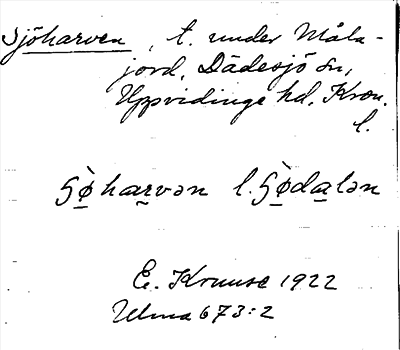 Sjöharven, t. under Måla-
jord, Dädesjö sn,
Uppvidinge hd, Kron.
l.
ʂø̀harvən l. ʂø̀dalən
E. Kruuse 1922
Ulma 673:2